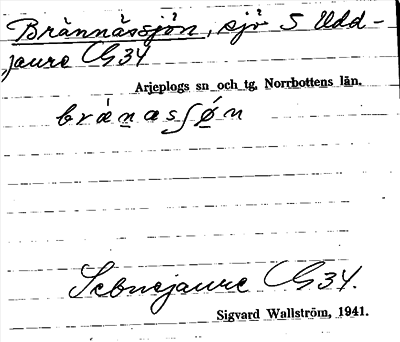 Brännässjön, sjö S Udd-
jaure G34
Arjeplogs sn och tg, Norrbottens län.
brǽn̲æsʃǿ̲n
Sebnejaure G34.
Sigvard Wallström, 1941.